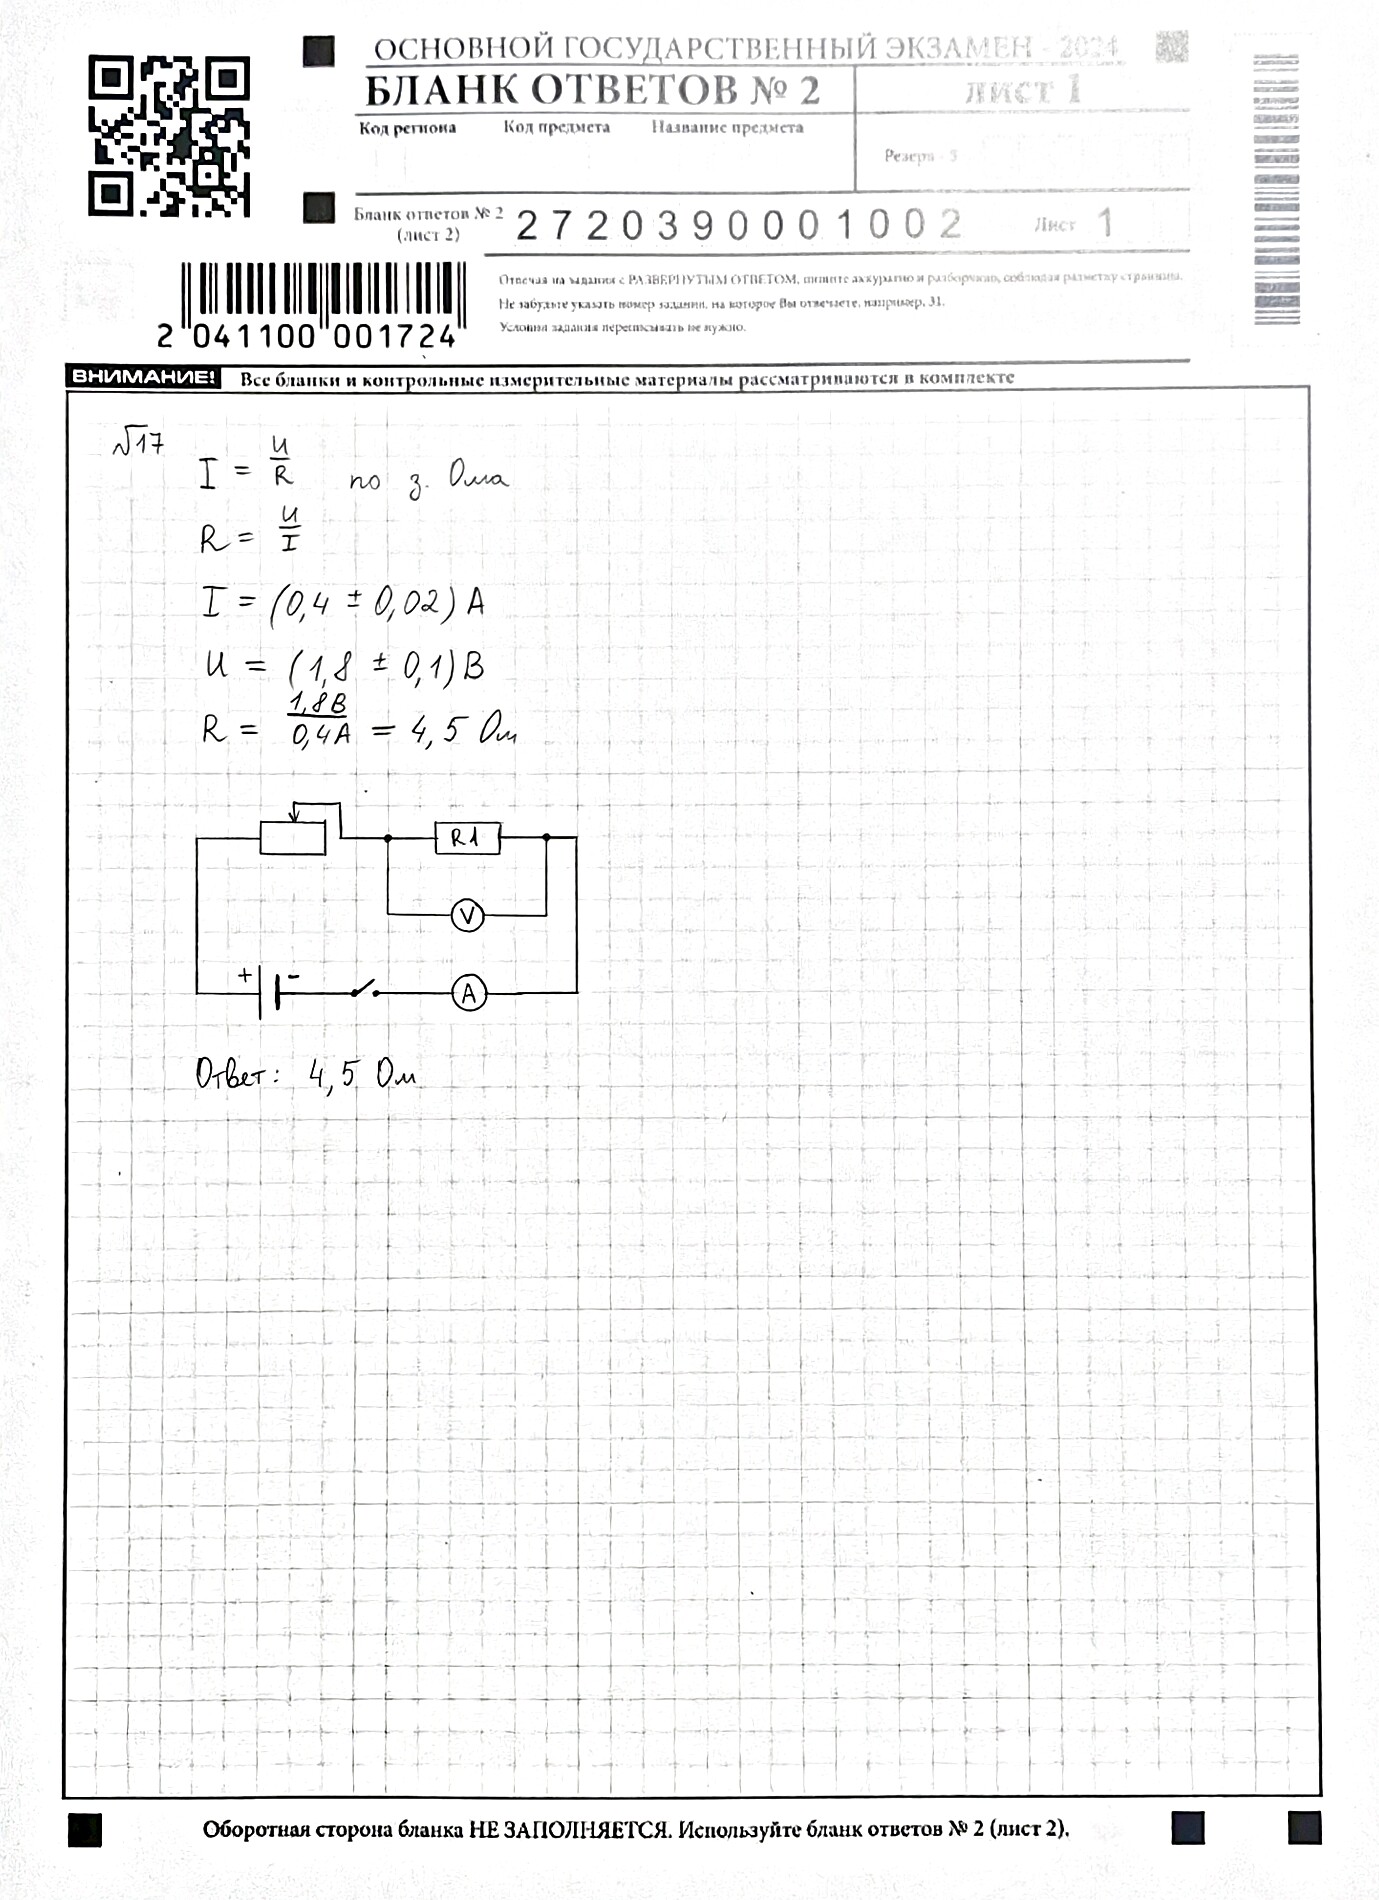 ОСНОВНОЙ ГОСУДАРСТВЕННЫЙ ЭКЗАМЕН - 2024
БЛАНК ОТВЕТОВ № 2
ЛИСТ 1
Код региона Код предмета Название предмета
Резерв - 5
Бланк ответов № 2
(лист 2)
2720390001002
Лист 1
Отвечая на задания с РАЗВЕРНУТЫМ ОТВЕТОМ, пишите аккуратно и разборчиво, соблюдая разметку страницы.
Не забудьте указать номер задания, на которое Вы отвечаете, например, 31.
Условия задания переписывать не нужно.
2 041100 001724
ВНИМАНИЕ! Все бланки и контрольные измерительные материалы рассматриваются в комплекте
√17
I = U/R по з. Ома
R = U/I
I = (0,4 ± 0,02) А
U = (1,8 ± 0,1) В
R = 1,8В/0,4А = 4,5 Ом
R1
V
+ -
A
Ответ: 4,5 Ом
Оборотная сторона бланка НЕ ЗАПОЛНЯЕТСЯ. Используйте бланк ответов № 2 (лист 2).